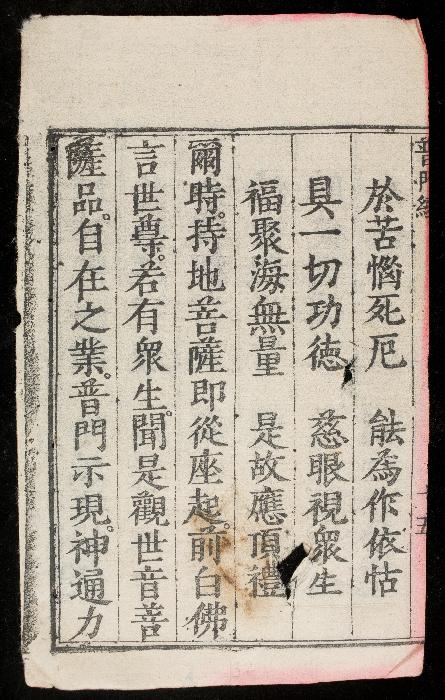 普門經
於苦惱死厄　能為作依怙
具一切功德　慈眼視眾生
福聚海無量　是故應頂禮
爾時。持地菩薩即從座起。前白佛
言世尊。若有眾生。聞是觀世音菩
薩品。自在之業、普門示現。神通力